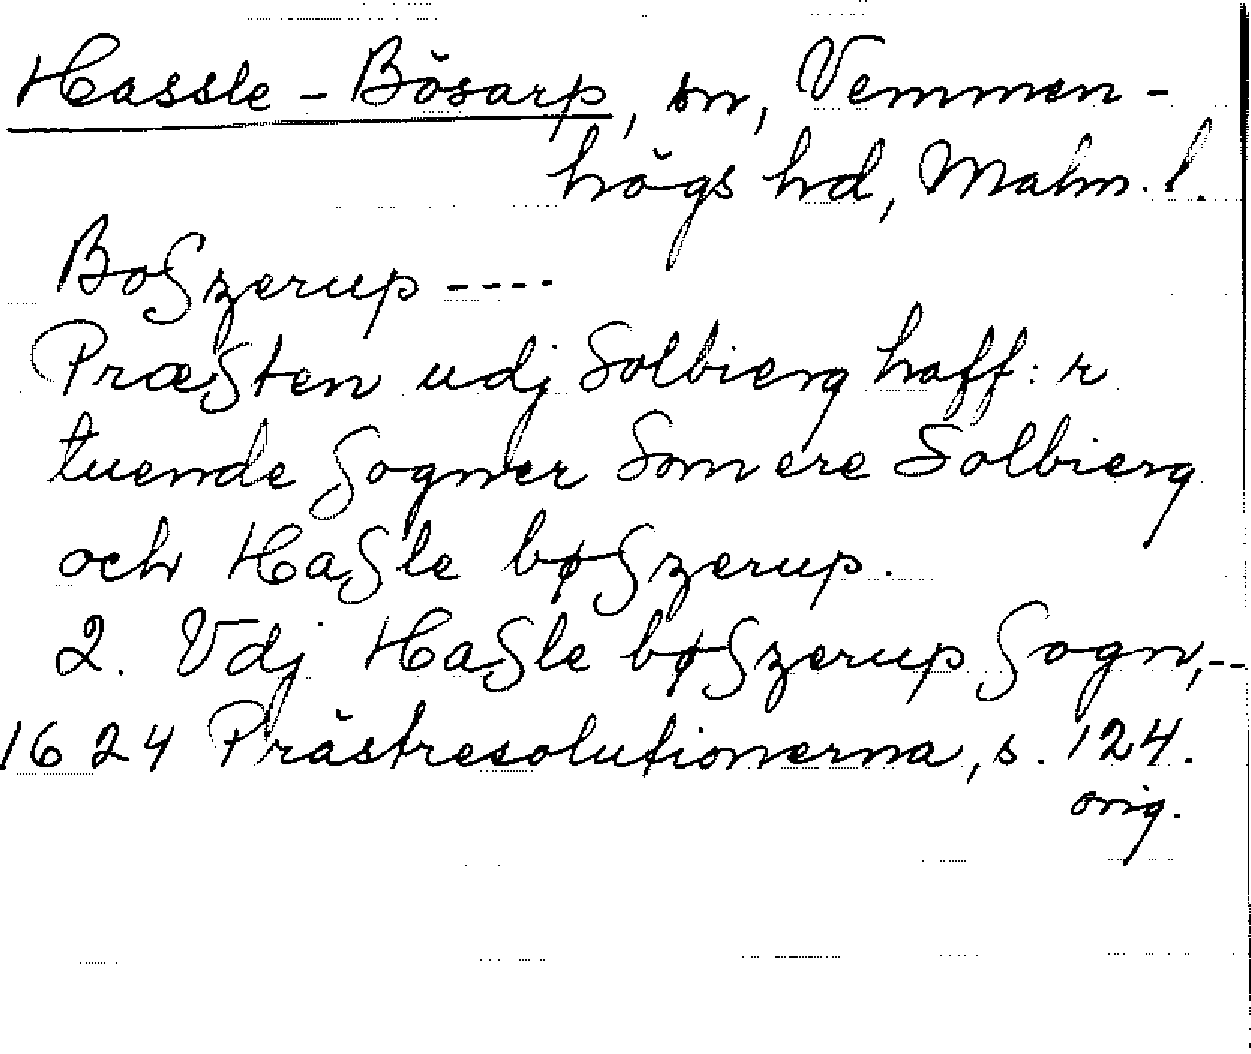 Hassle-Bösarp, sn, Vemmen-
högs hd, Malm. l.
Boszerup ----
Præsten udj Solbierg haff: r
tuende sogner Som ere Solbierg
och Hasle bøszerup.
2. Vdj Hasle bøszerup sogn,--
1624 Prästresolutionerna, s. 124.
orig.